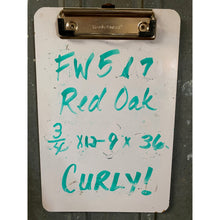 FW517
Red Oak
3/4 x12-9 x 36
CURLY!